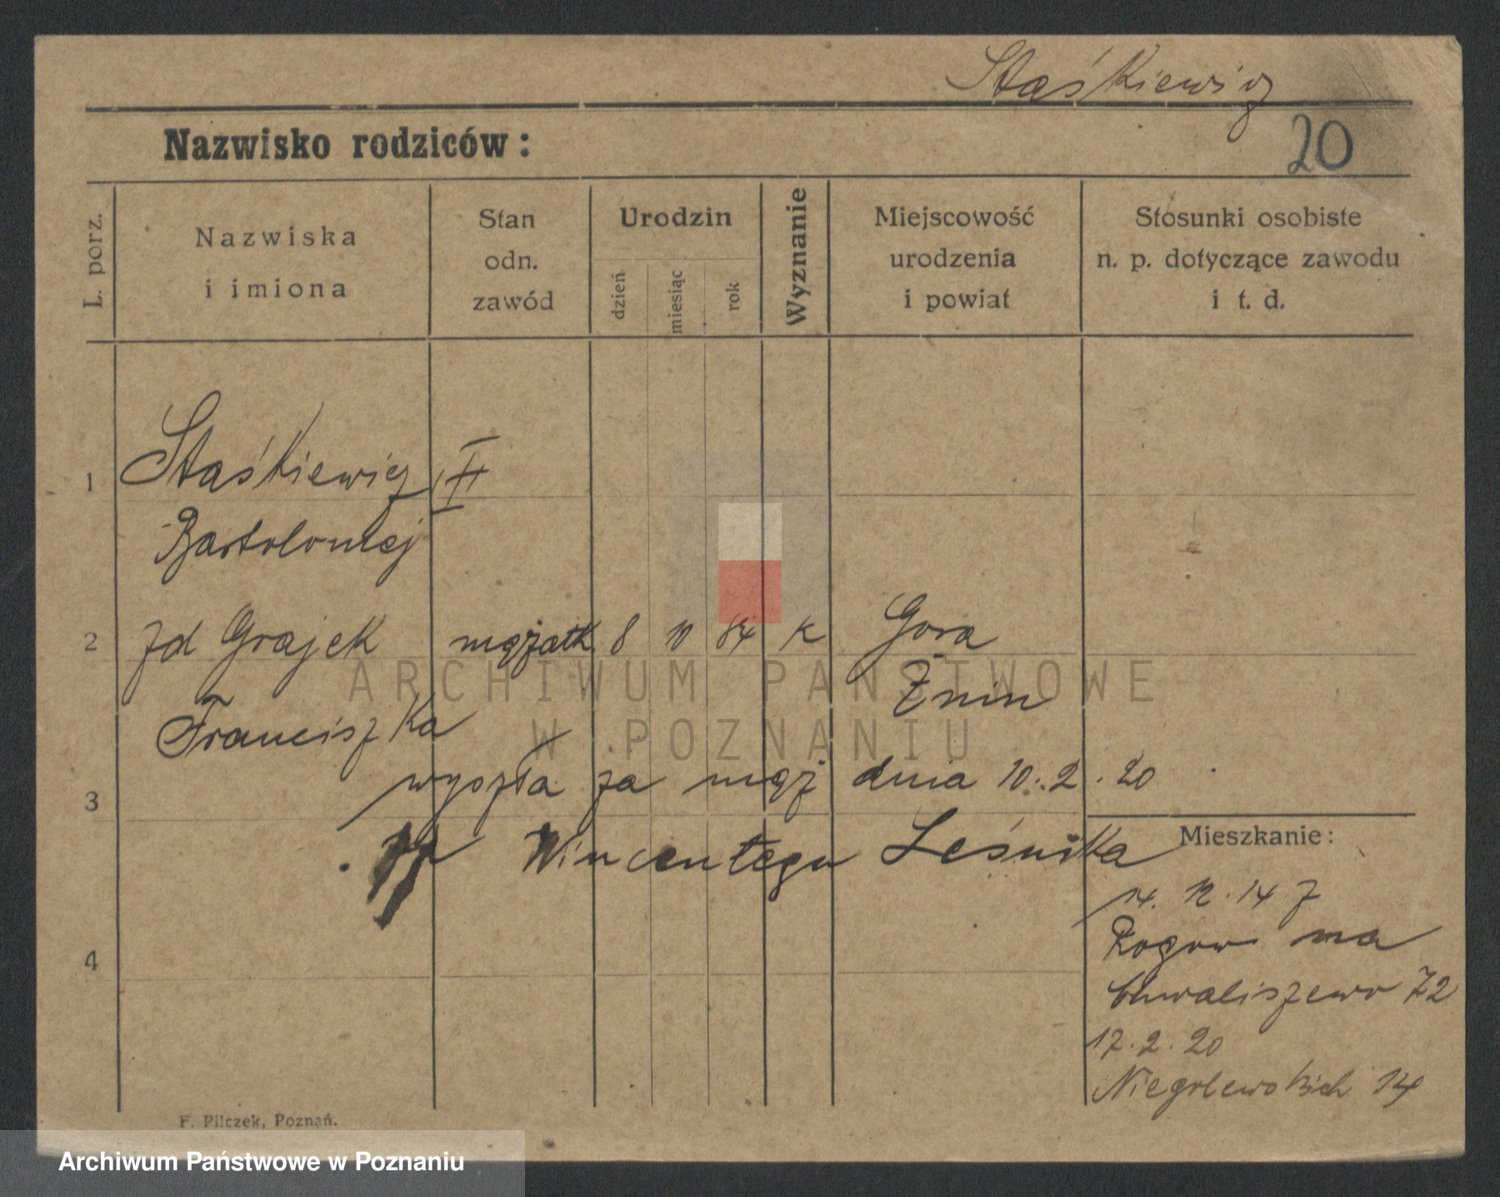 Staśkiewicz
20
Nazwisko rodziców:
L. porz.
Nazwiska
i imiona
Stan
odn.
zawód
Urodzin
dzień
miesiąc
rok
Wyznanie
Miejscowość
urodzenia
i powiat
Stosunki osobiste
n. p. dotyczące zawodu
i t. d.
1 Staśkiewicz
Bartolomej
2 zd Grajek mężatk. 8 10 84 k Gora
Żnin
Franciszka
3 wyszła za mąż dnia 10.2.20
Wincentego Leśnika
Mieszkanie:
14. 12. 14 z
Rogowa na
4
Chwaliszewo 72
17.2.20
Niegolewskich 14
F. Pilczek, Poznań.
ARCHIWUM PAŃSTWOWE
W POZNANIU
Archiwum Państwowe w Poznaniu